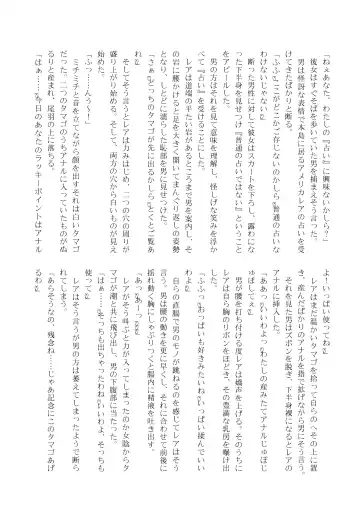 「ねぇあなた、わたしの『占い』に興味ないかしら？」
　彼女はすぐそばを歩いていた男を捕まえそう言った。
　男は怪訝な表情で本島に居るアメリカレアの占いを受
けてきたばかりだと断る。
「ふふ♡ここがどこかご存じないのかしら♡普通の占いな
わけないじゃない♡」
　断った男性に対して彼女はスカートを下ろし、露わになっ
た下半身を見せつけ『普通の占いではない』ということ
をアピールした。
　男の方はそれを見て意味を理解し、怪しげな笑みを浮か
べて『占い』を受けることにした。
　レアは道端の平たい岩があるところまで男を案内し、そ
の岩に腰かけると足を大きく開いてまんぐり返しの姿勢
となり、しとどに濡らした恥部を男に見せつけた。
「さぁ♡どっちのタマゴが先に出るかしら♡よくとご覧あ
れ♡」
　そしてそう言うとレアは力みはじめ、二つの穴の周りが
盛り上がり始める。そして、両方の穴から白いものが見え
始めた。
「ふっ……んぅ～！」
　ミチミチと音を立てながら顔を出すそれは白いタマゴ
だった。二つのタマゴのうちアナルに入っていたものがぬ
るりと産まれ、尾羽の上に落ちる。
「はぁ……♡……♡今日のあなたのラッキーポイントはアナル
よ！いっぱい使ってね♡」
　レアはまだ温かいタマゴを拾って自らのへその上に置
き、産んだばかりのアナルを指で拡げながら男にそう言う。
　それを見た男はズボンを脱ぎ、下半身裸になるとレアの
アナルに挿入した。
「ああっ♡いいわよっ♡わたしの産みたてアナルじゅぽじ
ゅぽしてぇ♡」
　男が腰を打ち付ける度レアは嬌声を上げる。そのうちに
レアは自ら胸のリボンをほどき、その豊満な乳房を曝け出
した。
「ふふっ♡おっぱいも好きみたいね♡いっぱい揉んでいい
わよ♡」
　自らの直腸で男のモノが跳ねるのを感じてレアはそう
言う。男は腰の動きを更に早くし、それに合わせて前後に
揺れ動く胸にしゃぶりつくと腸内に精液を吐き出す。
　レアがそう叫ぶとひと力が入ったのか女陰からタ
マゴが潮と共に飛び出し、男の下腹部に当たった。
「はぁ……♡……♡どっちも出ちゃったわね♡いいわよ、そっちも
使って♡」
　レアはそう言うが男の方は萎えてしまったようで断ら
れてしまう。
「あらそうなの、残念ね……じゃあ記念にこのタマゴあげ
るわ♡」